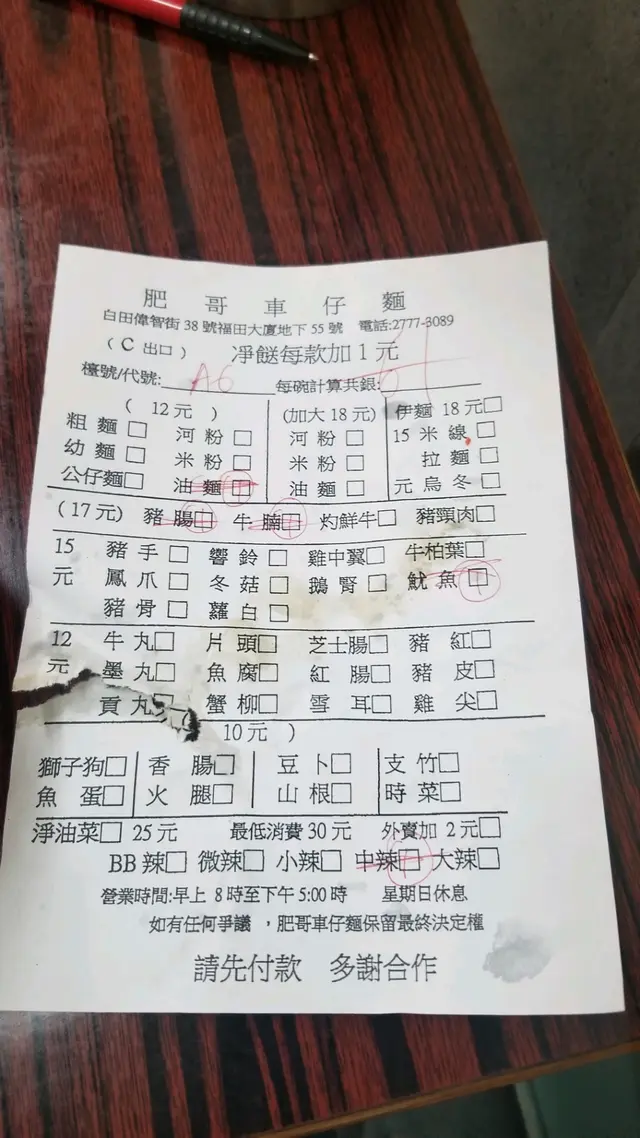 肥哥車仔麵
白田偉智街38號福田大廈地下55號 電話:2777-3089
(C出口) 凈餸每款加1元
檯號/代號: A6 每碗計算共銀:61
(12元) (加大18元) 伊麵 18元□
粗麵□ 河粉□ 河粉□ 15米線□
幼麵□ 米粉□ 米粉□ 拉麵□
公仔麵□ 油麵□ 油麵□ 元烏冬□
(17元) 豬腸□ 牛腩□ 灼鮮牛□ 豬頸肉□
15 豬手□ 響鈴□ 雞中翼□ 牛柏葉□
元 鳳爪□ 冬菇□ 鵝腎□ 魷魚□
豬骨□ 蘿白□
12 牛丸□ 片頭□ 芝士腸□ 豬紅□
元 墨丸□ 魚腐□ 紅腸□ 豬皮□
貢丸□ 蟹柳□ 雪耳□ 雞尖□
10元 )
獅子狗□ 香腸□ 豆卜□ 支竹□
魚蛋□ 火腿□ 山根□ 時菜□
淨油菜□ 25元 最低消費30元 外賣加 2元□
BB辣□ 微辣□ 小辣□ 中辣□ 大辣□
營業時間:早上 8時至下午5:00時 星期日休息
如有任何爭議，肥哥車仔麵保留最終決定權
請先付款 多謝合作